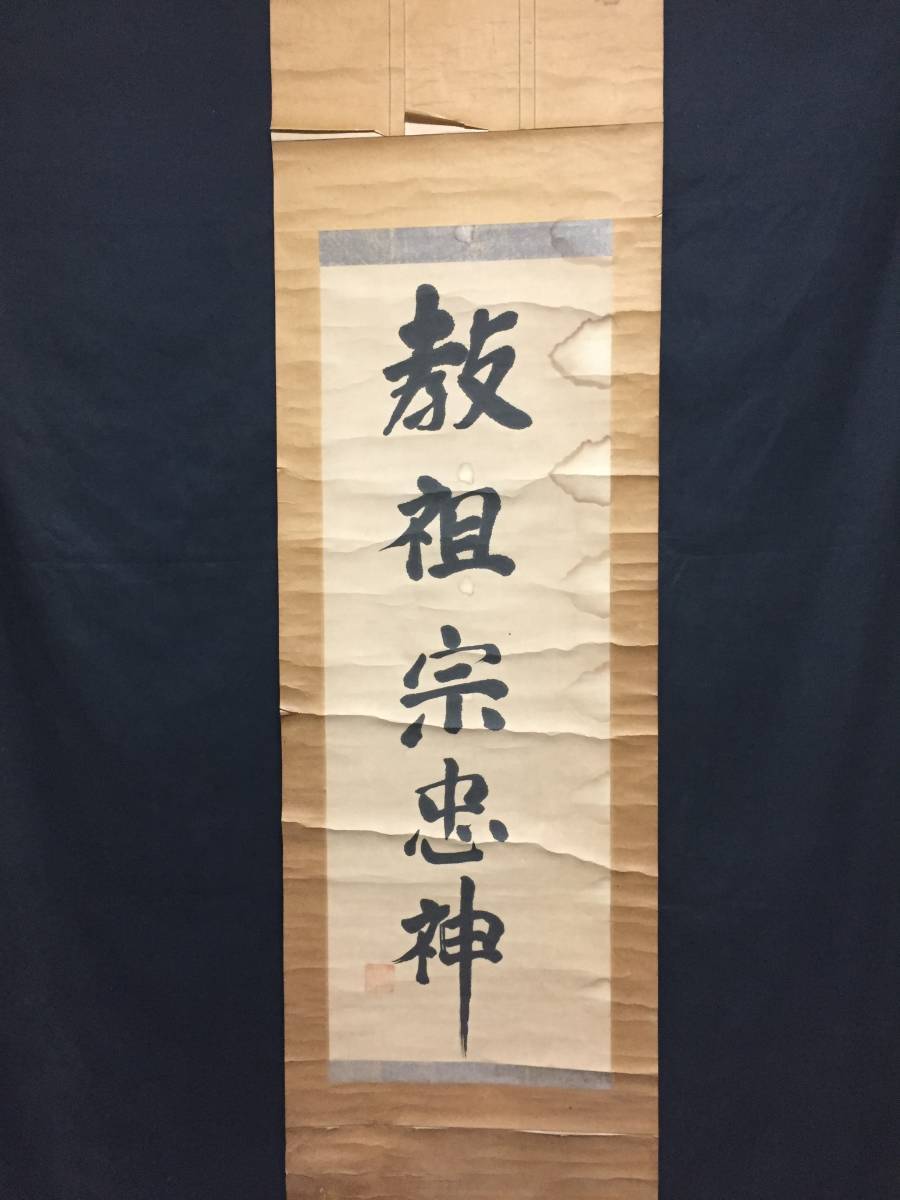 教祖宗忠神